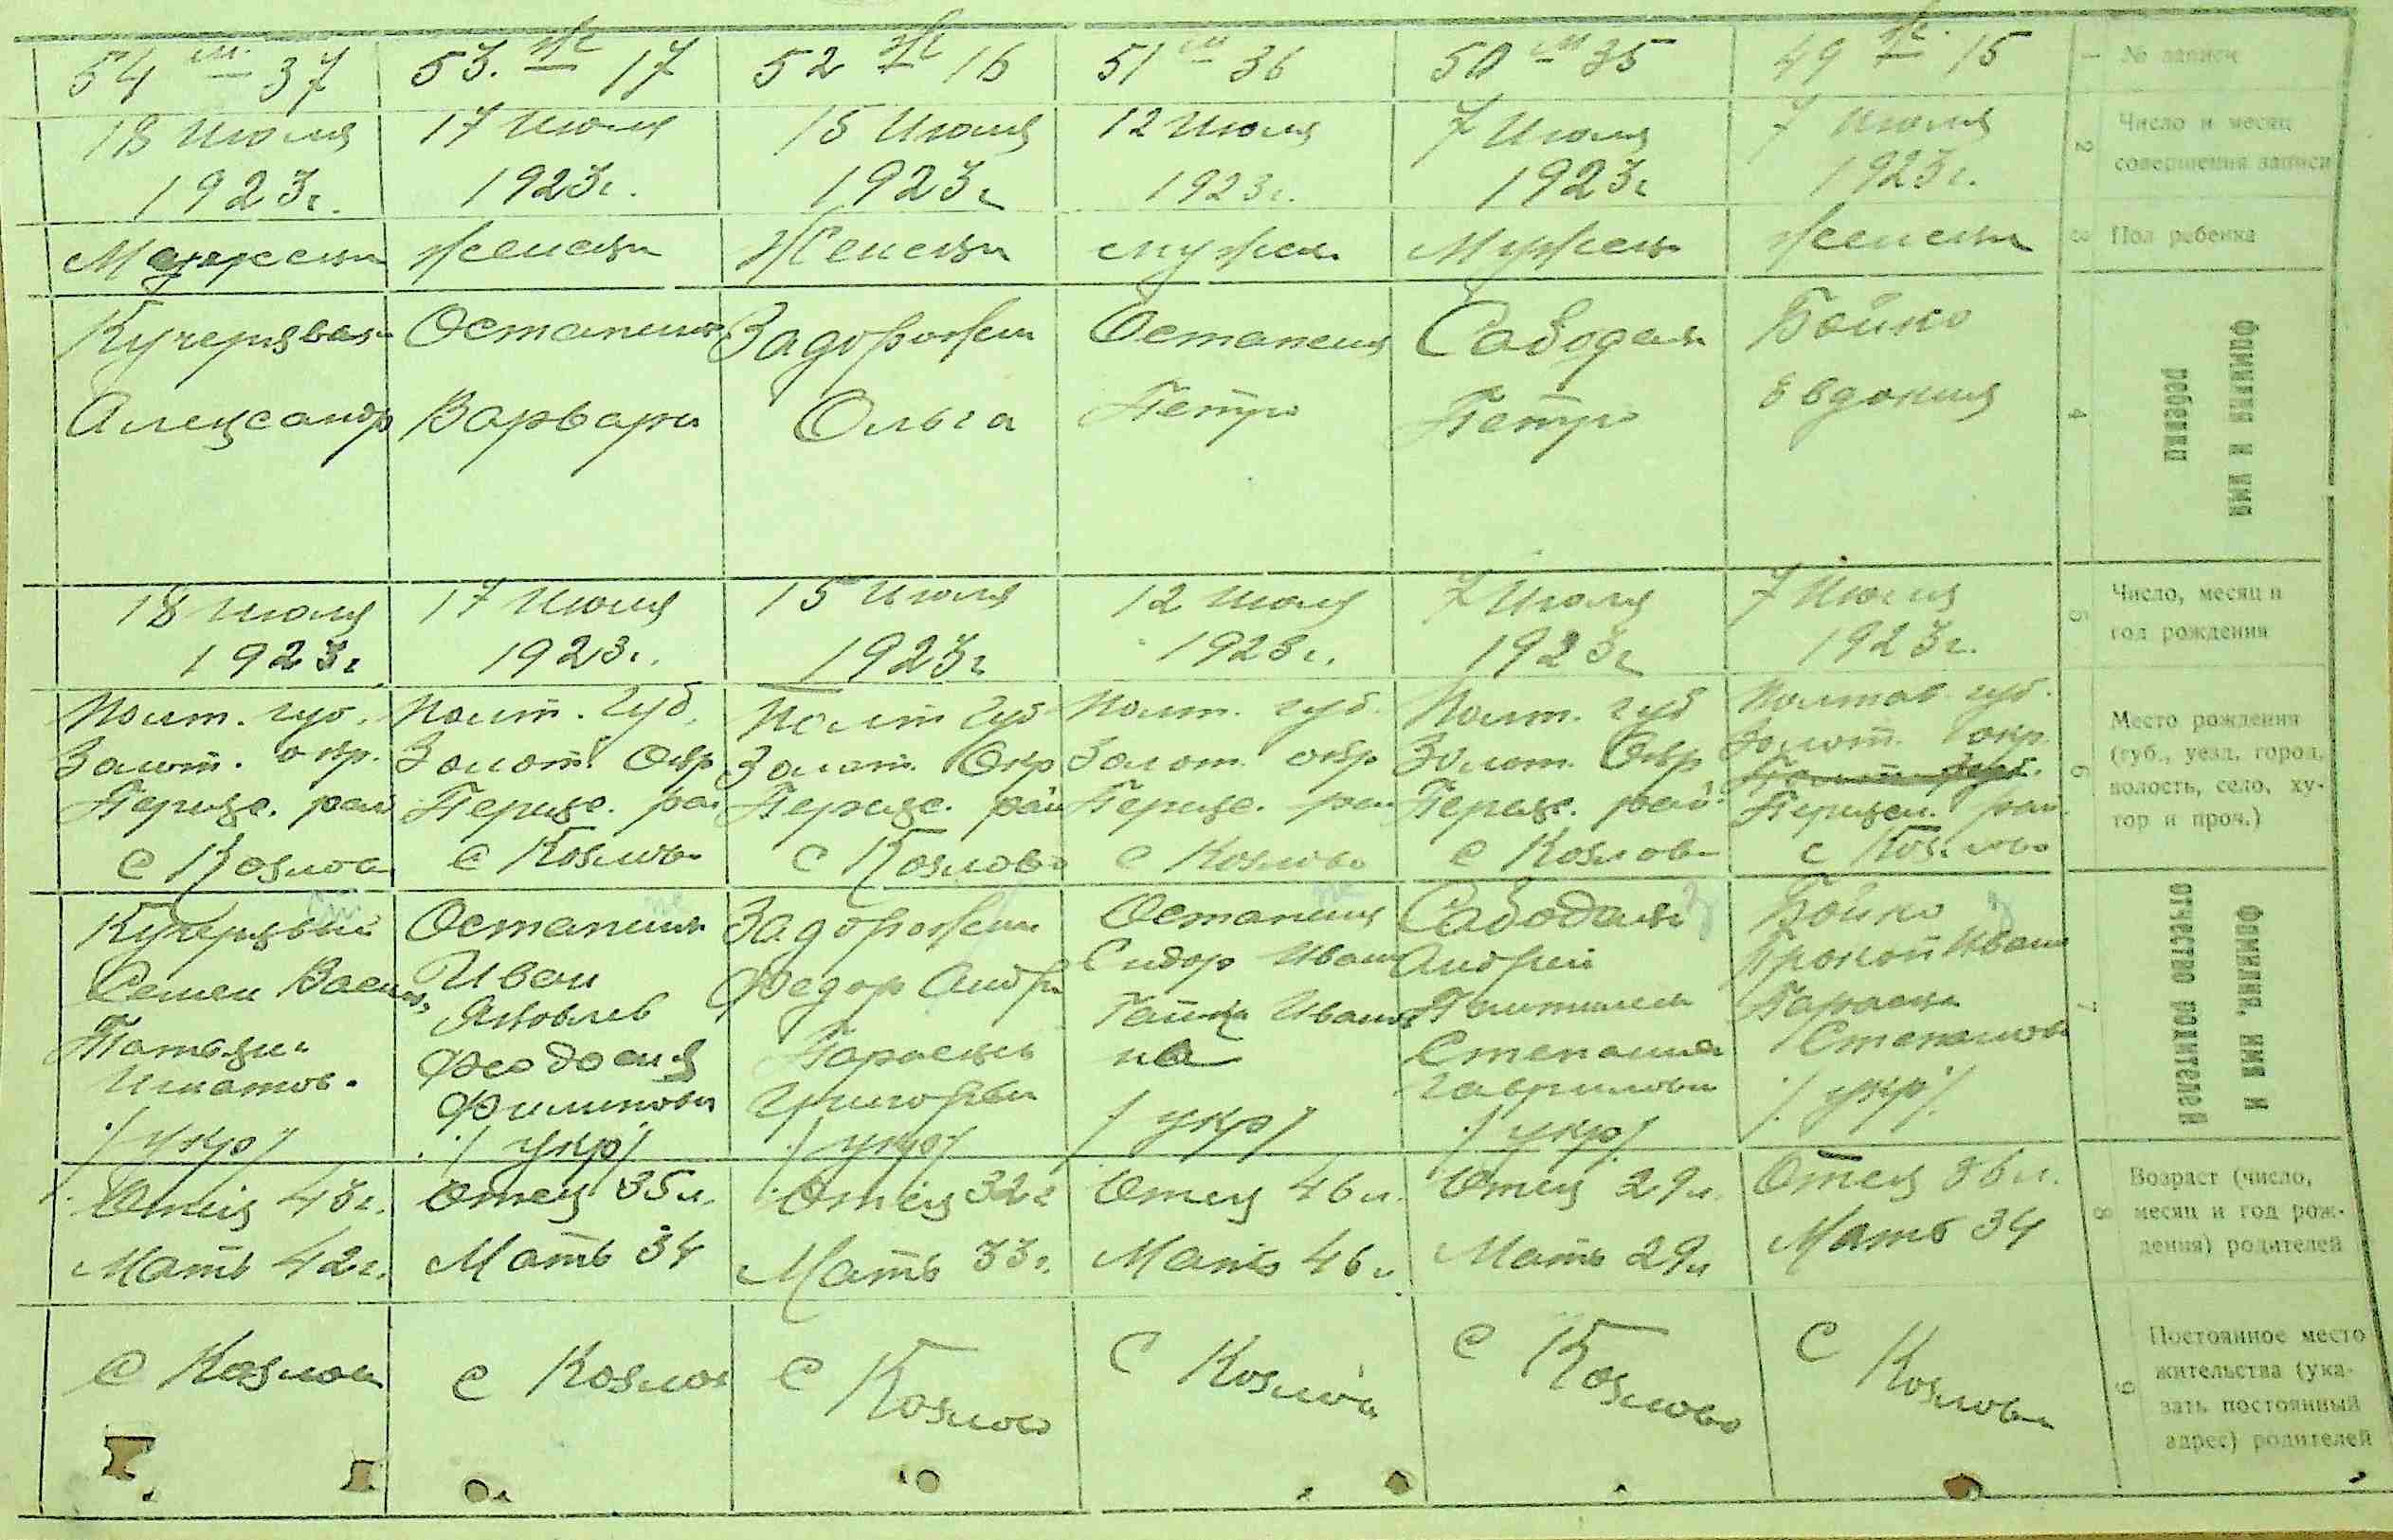 54 м 37
53. ж 17
52 ж 16
51 м 36
50 м 35
49 ж 15
1 № записи
18 Июля
1923г.
17 Июля
1923г.
15 Июля
1923г
12 Июля
1923г.
7 Июля
1923г
7 Июля
1923г.
2 Число и месяц
совершения записи
Женски
Женски
Мужски
Женски
3 Пол ребенка
Александр
Остапенко
Варвара
Задорожни
Ольга
Остапенко
Петро
Сабодаш
Петро
Бойко
Евдокия
4 Фамилия и имя
ребенка
18 Июля
1923г
17 Июля
1923г.
15 Июля
1923г
12 Июля
1923г.
7 Июля
1923г
7 Июля
1923г.
5 Число, месяц и
год рождения
Полт. губ.
Золот. окр.
с Козлов
Полт. губ.
Золот. Окр
с Козлово
Полт губ
Золот. Окр
с Козлово
Полт. губ.
Золот. окр
с Козлово
Полт. губ
Золот. Окр
с Козлово
Полтав. губ.
Золот. окр.
с Козлово
6 Место рождения
(губ., уезд, город,
волость, село, ху-
тор и проч.)
Кучерявый
Семен Васил.
Игнатов.
/укр/
Остапенко
Иван
Яковлев
Феодосия
Филипова
/укр/
Задорожни
Федор Андр
Параска
Григорьев
/укр/
Остапенко
Сидор Иван
на
/укр/
Сабодаш
Андрей
Степанида
Гаврилова
/укр/
Бойко
Прокоп Иван
Параска
Степанова
/укр/
7 Фамилия, имя и
отчество родителей
Отец 43г.
Мать 42г.
Отец 35л.
Мать 34
Отец 32г
Мать 33г.
Отец 46л.
Мать 46л
Отец 29л.
Мать 29л
Отец 36л.
Мать 34
8 Возраст (число,
месяц и год рож-
дения) родителей
с Козлов
с Козлов
с Козлово
с Козлов
с Козлово
с Козлово
9 Постоянное место
жительства (ука-
зать постоянный
адрес) родителей